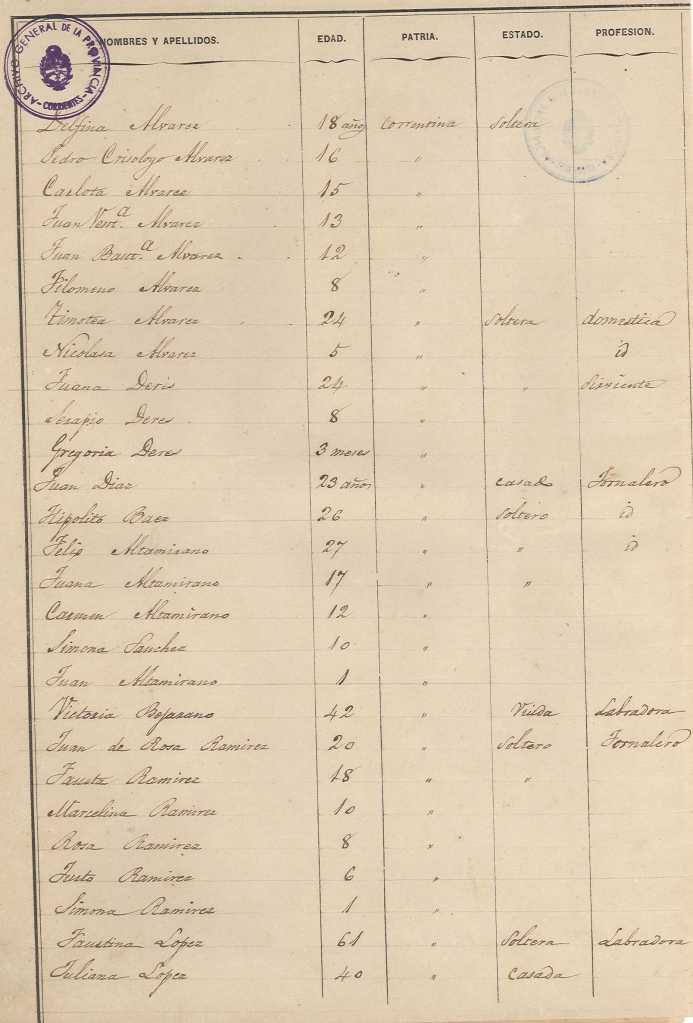 ARCHIVO GENERAL DE LA PROVINCIA - CORRIENTES -
NOMBRES Y APELLIDOS. EDAD. PATRIA. ESTADO. PROFESION.
Delfina Alvarez 18 años correntina soltera
Pedro Crisologo Alvarez 16 "
Carlota Alvarez 15 "
Juan Vent.a Alvarez 13 "
Juan Baut.a Alvarez 12 "
Filomeno Alvarez 8 "
Timotea Alvarez 24 " soltera domestica
Nicolasa Alvarez 5 " id
Juana Deris 24 " " sirviente
Serapio Deres 8 "
Gregoria Deres 3 meses "
Juan Diaz 23 años " casado Jornalero
Hipolito Baez 26 " soltero id
Felip Altamirano 27 " " id
Juana Altamirano 17 " "
Carmen Altamirano 12 "
Simona Sanchez 10 "
Juan Altamirano 1 "
Victoria Bejarano 42 " Viuda Labradora
Juan de Rosa Ramirez 20 " soltero Jornalero
Fausta Ramirez 18 " "
Marcelina Ramirez 10 "
Rosa Ramirez 8 "
Justo Ramirez 6 "
Simona Ramirez 1 "
Faustina Lopez 61 " soltera Labradora
Juliana Lopez 40 " casada